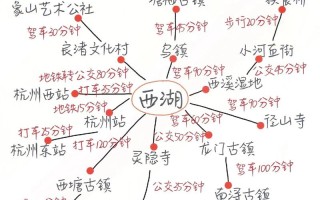 象山艺术公社
驾车30分钟
良渚文化村
驾车90分钟
乌镇
驾车20分钟
步行20分钟
小河直街
地铁转公交80分钟
公交45分钟
杭州西站
打车35分钟
西湖
西溪湿地
地铁15分钟
驾车40分钟
杭州站
驾车90分钟
径山寺
打车25分钟
驾车80分钟
杭州东站
打车120分钟
公交50分钟
灵隐寺
龙门古镇
西塘古镇
公交35分钟
驾车100分钟